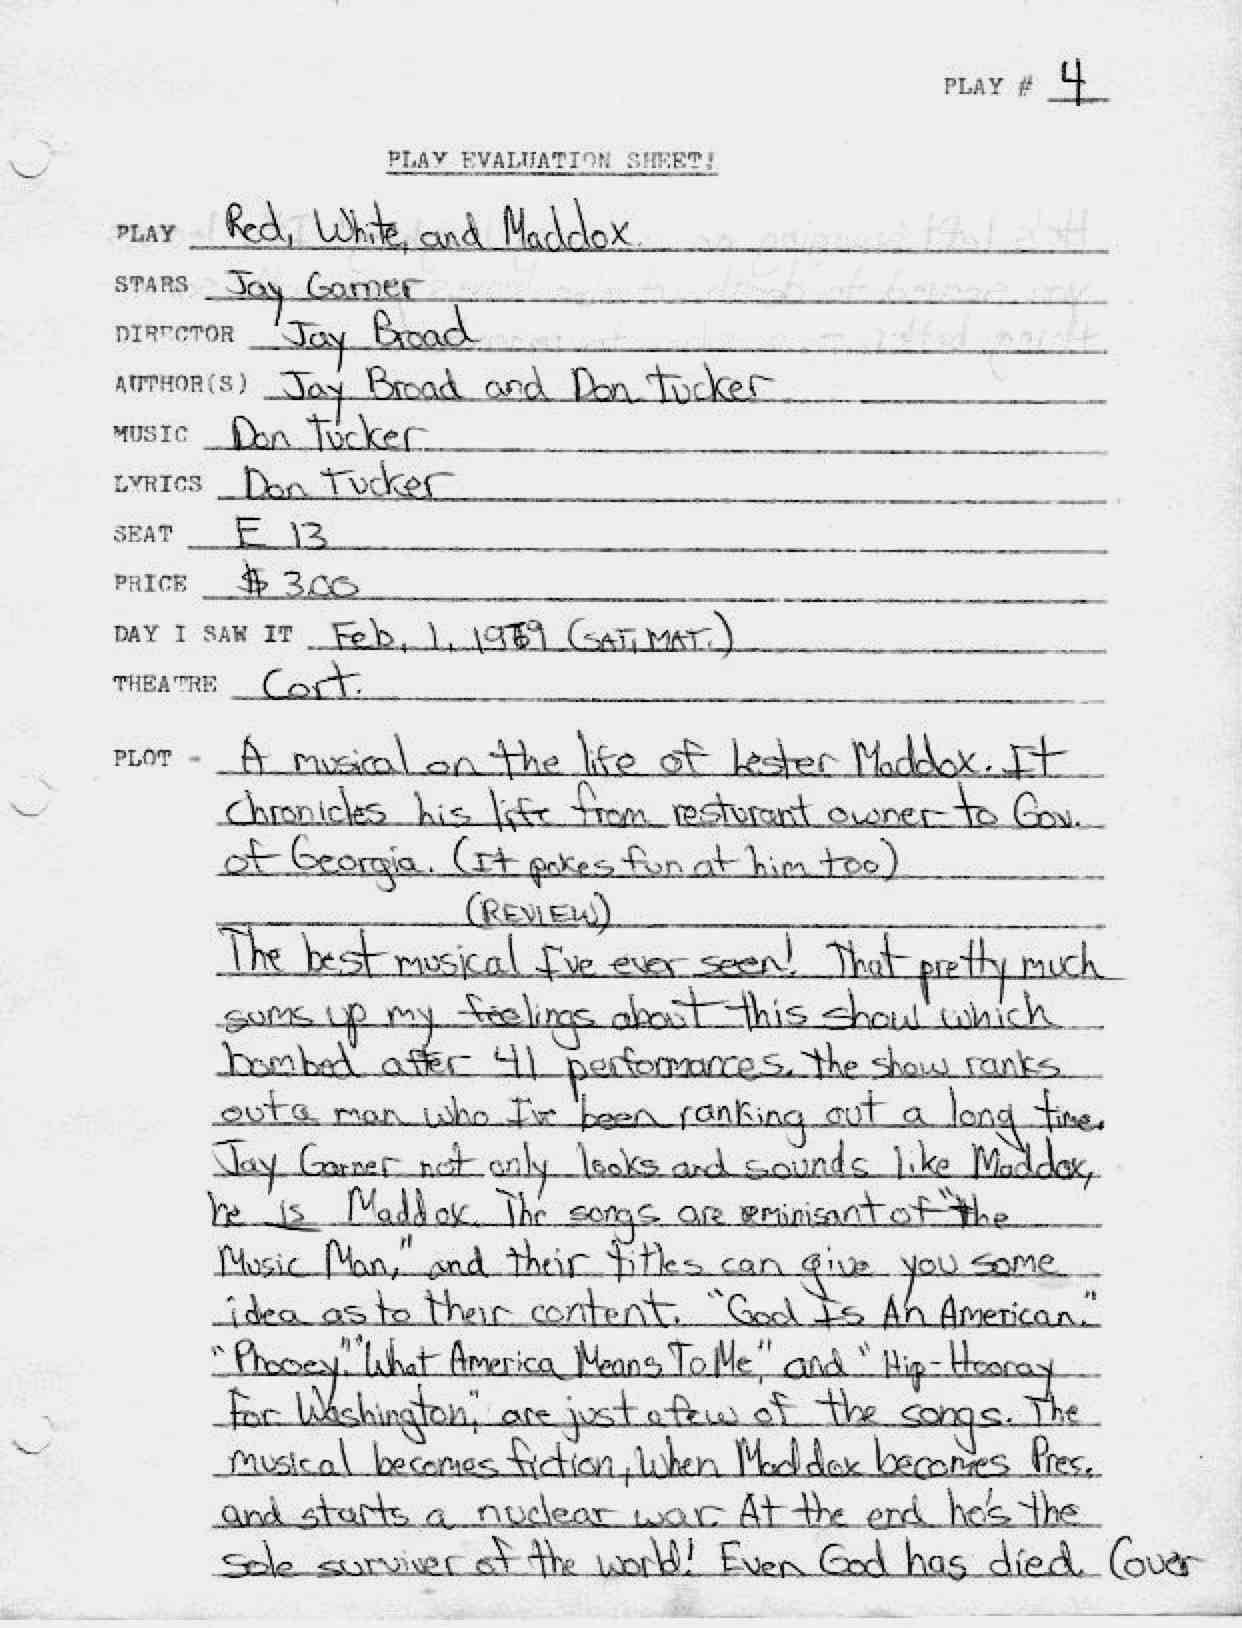 PLAY # 4
PLAY EVALUATION SHEET!
PLAY Red, White, and Maddox
STARS Jay Garner
DIRECTOR Jay Broad
AUTHOR(S) Jay Broad and Don Tucker
MUSIC Don Tucker
LYRICS Don Tucker
SEAT E 13
PRICE $ 3.00
DAY I SAW IT Feb. 1, 1969 (SAT. MAT.)
THEATRE Cort.
PLOT - A musical on the life of Lester Maddox. It
chronicles his life from resturant owner to Gov.
of Georgia. (It pokes fun at him too)
(REVIEW)
The best musical I've ever seen! That pretty much
sums up my feelings about this show which
bombed after 41 performances. The show ranks
out a man who I've been ranking out a long time.
Jay Garner not only looks and sounds like Maddox,
he is Maddox. The songs are reminisant of "The
Music Man," and their titles can give you some
idea as to their content. "God Is An American."
"Phooey". "What America Means To Me," and "Hip-Hooray
For Washington," are just a few of the songs. The
musical becomes fiction, when Maddox becomes Pres.
and starts a nuclear war. At the end he's the
sole surviver of the world! Even God has died. (over